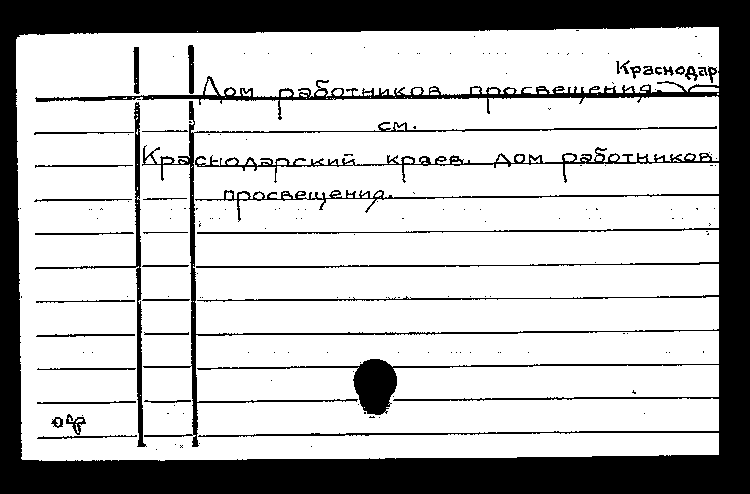 Краснодар
Дом работников просвещения.
см.
Краснодарский краев. дом работников
просвещения.